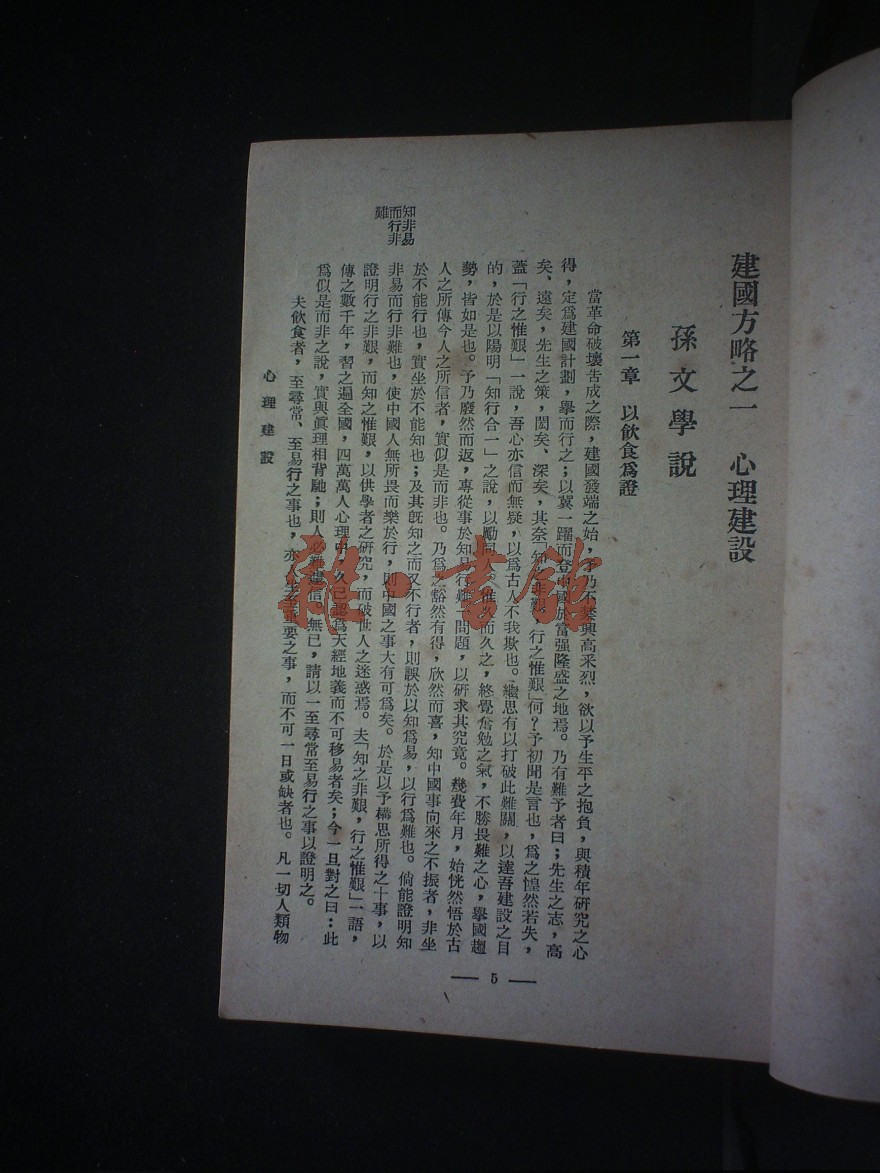 建國方略之一 心理建設
孫文學說
第一章 以飲食爲證
當革命破壞吿成之際，建國發端之始，予乃不禁興高采烈，欲以予生平之抱負，與積年研究之心
得，定爲建國計劃，舉而行之；以冀一躍而登中國於富强隆盛之地焉。乃有難予者曰；先生之志，高
矣、遠矣，先生之策，閎矣、深矣，其奈「知之非艱，行之惟艱」何？予初聞是言也，爲之惶然若失，
蓋「行之惟艱」一說，吾心亦信而無疑，以爲古人不我欺也。繼思有以打破此難關，以達吾建設之目
的，於是以陽明「知行合一」之說，以勵同人。惟久而久之，終覺奮勉之氣，不勝畏難之心，舉國趨
勢，皆如是也。予乃廢然而返，專從事於知易行難一問題，以研求其究竟。幾費年月，始恍然悟於古
人之所傳今人之所信者，實似是而非也。乃爲之豁然有得，欣然而喜，知中國事向來之不振者，非坐
於不能行也，實坐於不能知也；及其旣知之而又不行者，則誤於以知爲易，以行爲難也。倘能證明知
非易而行非難也，使中國人無所畏而樂於行，則中國之事大有可爲矣。於是以予構思所得之十事，以
證明行之非艱，而知之惟艱，以供學者之研究，而破世人之迷惑焉。夫「知之非艱，行之惟艱」一語，
傳之數千年，習之遍全國，四萬萬人心理中，久已認爲天經地義而不可移易者矣；今一旦對之曰：此
爲似是而非之說，實與眞理相背馳；則人必難遽信。無已，請以一至尋常至易行之事以證明之。
夫飲食者，至尋常、至易行之事也，亦人生至重要之事，而不可一日或缺者也。凡一切人類物
知非易
而行非
難
心理建設
— 5 —
雜·書館